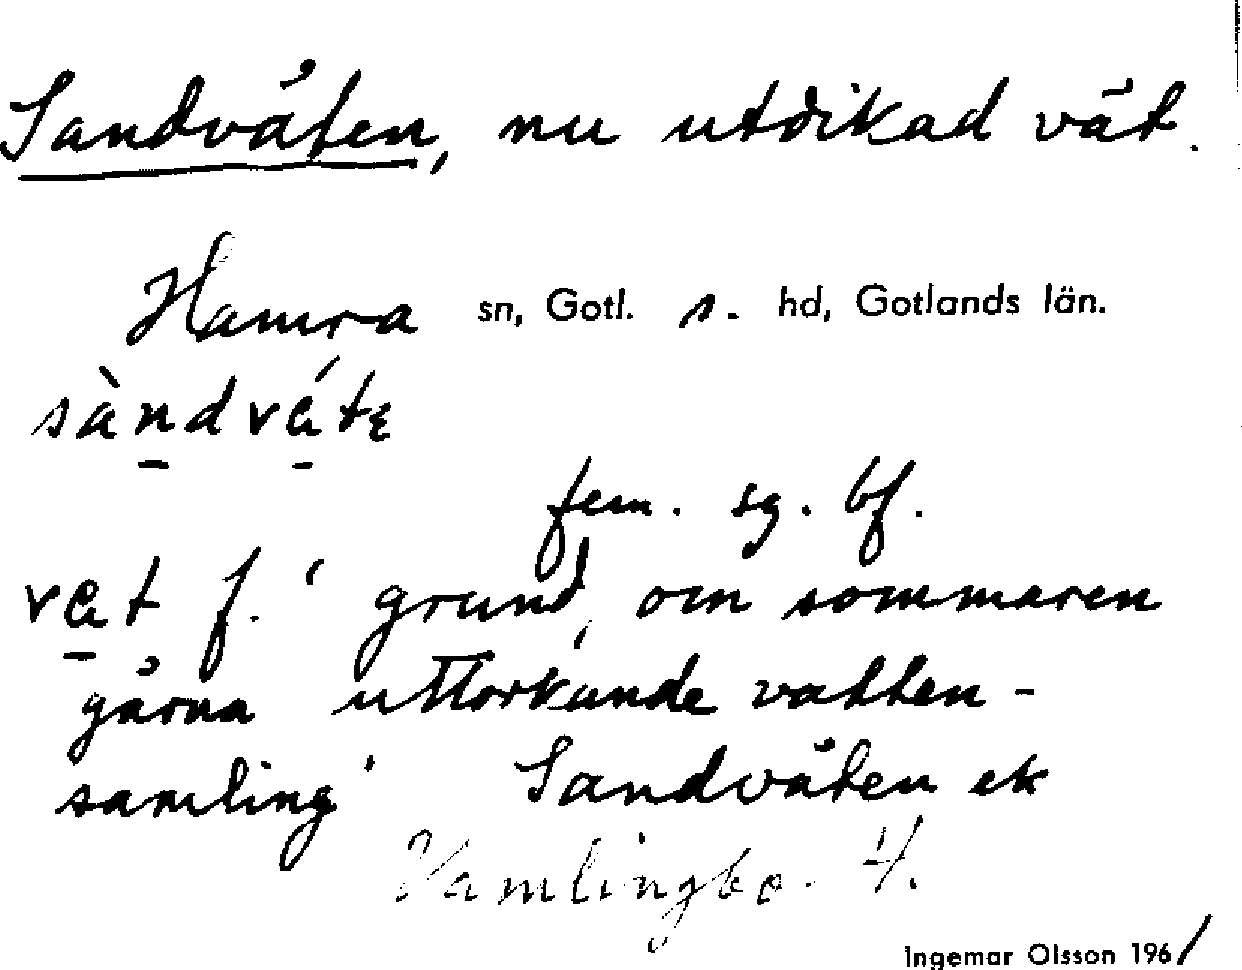 Sandväten, nu utdikad vät.
Hamra sn, Gotl. s. hd, Gotlands län.
sàndváte
fem. sg. bf.
vat f. ' grund, om sommaren
gärna uttorkande vatten-
samling' Sandväten ek
Vamlingbo. 4.
Ingemar Olsson 1961